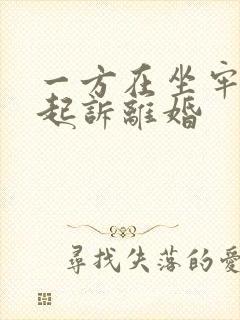 一方在坐牢
起訴離婚
尋找失落的愛